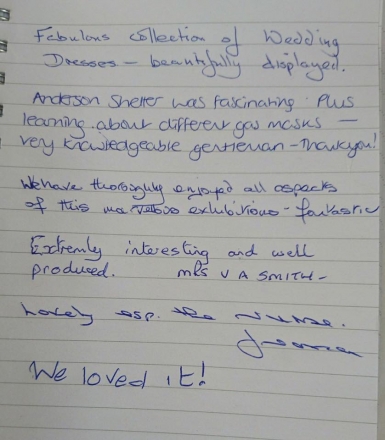 Fabulous collection of Wedding
Dresses – beautifully displayed.
Anderson Shelter was fascinating. Plus
learning about different gas masks –
very knowledgeable gentleman – Thankyou!
We have thoroughly enjoyed all aspects
of this marvellous exhibitions – fantastic
Extremly interesting and well
produced. Mrs V A SMITH –
Lovely esp. the
We loved it!